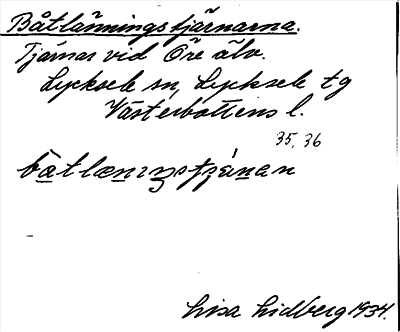 Båtlänningstjärnarna.
Tjärnar vid Öre älv.
Lycksele sn, Lycksele tg
Västerbottens l.
35, 36
båtlænıŋstjæ̀ṇan
Lisa Lidberg 1934.